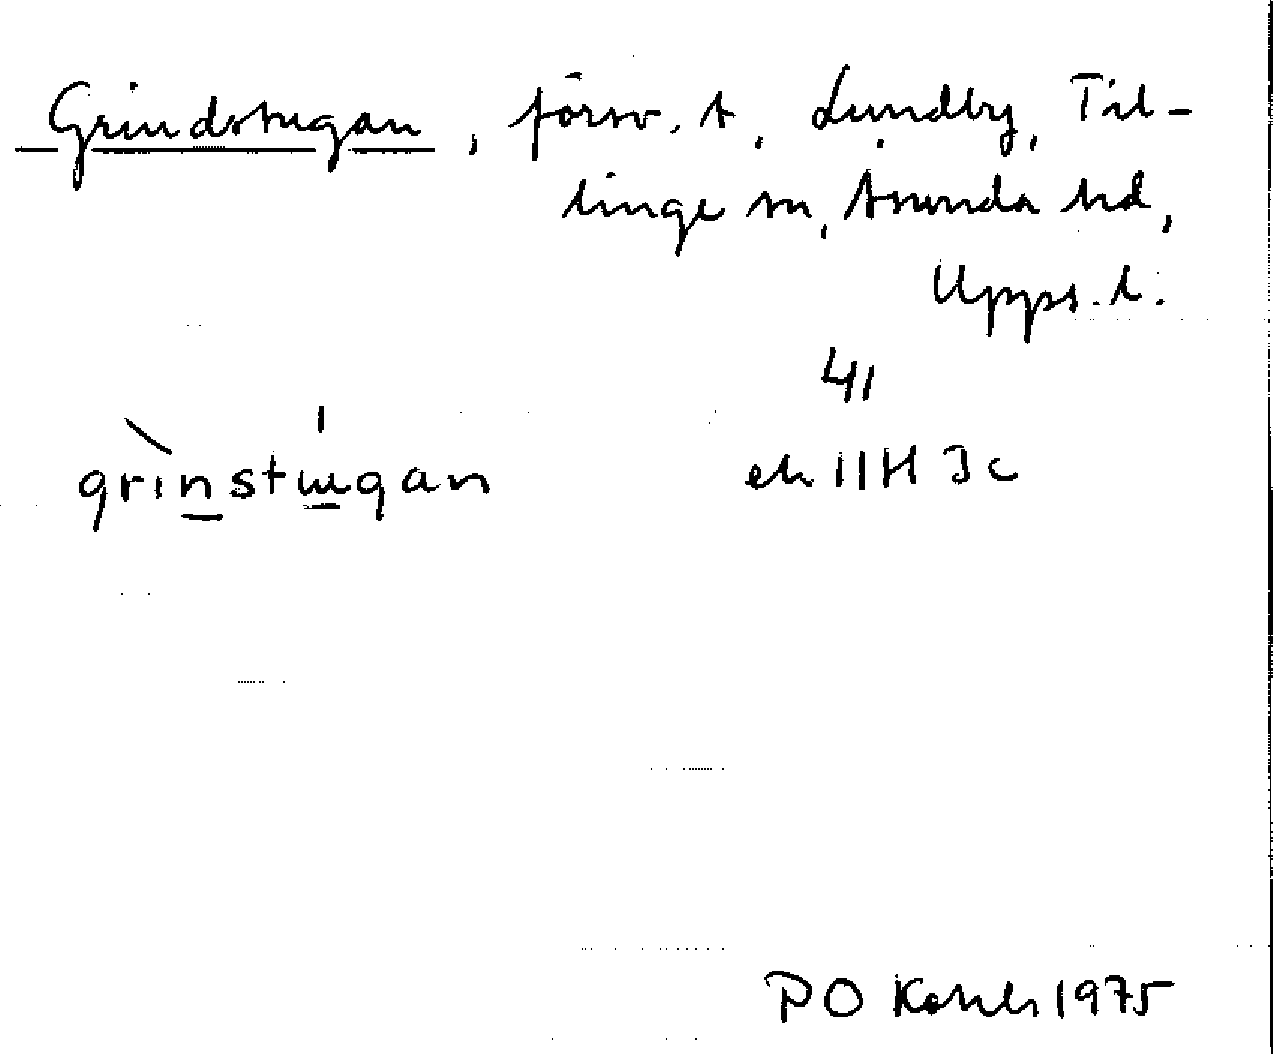 Grindstugan, försv. t, Lundby, Til-
linge sn, Åsunda hd,
Upps. l.
41
grinstugan ek 11H 3c
PO 1975